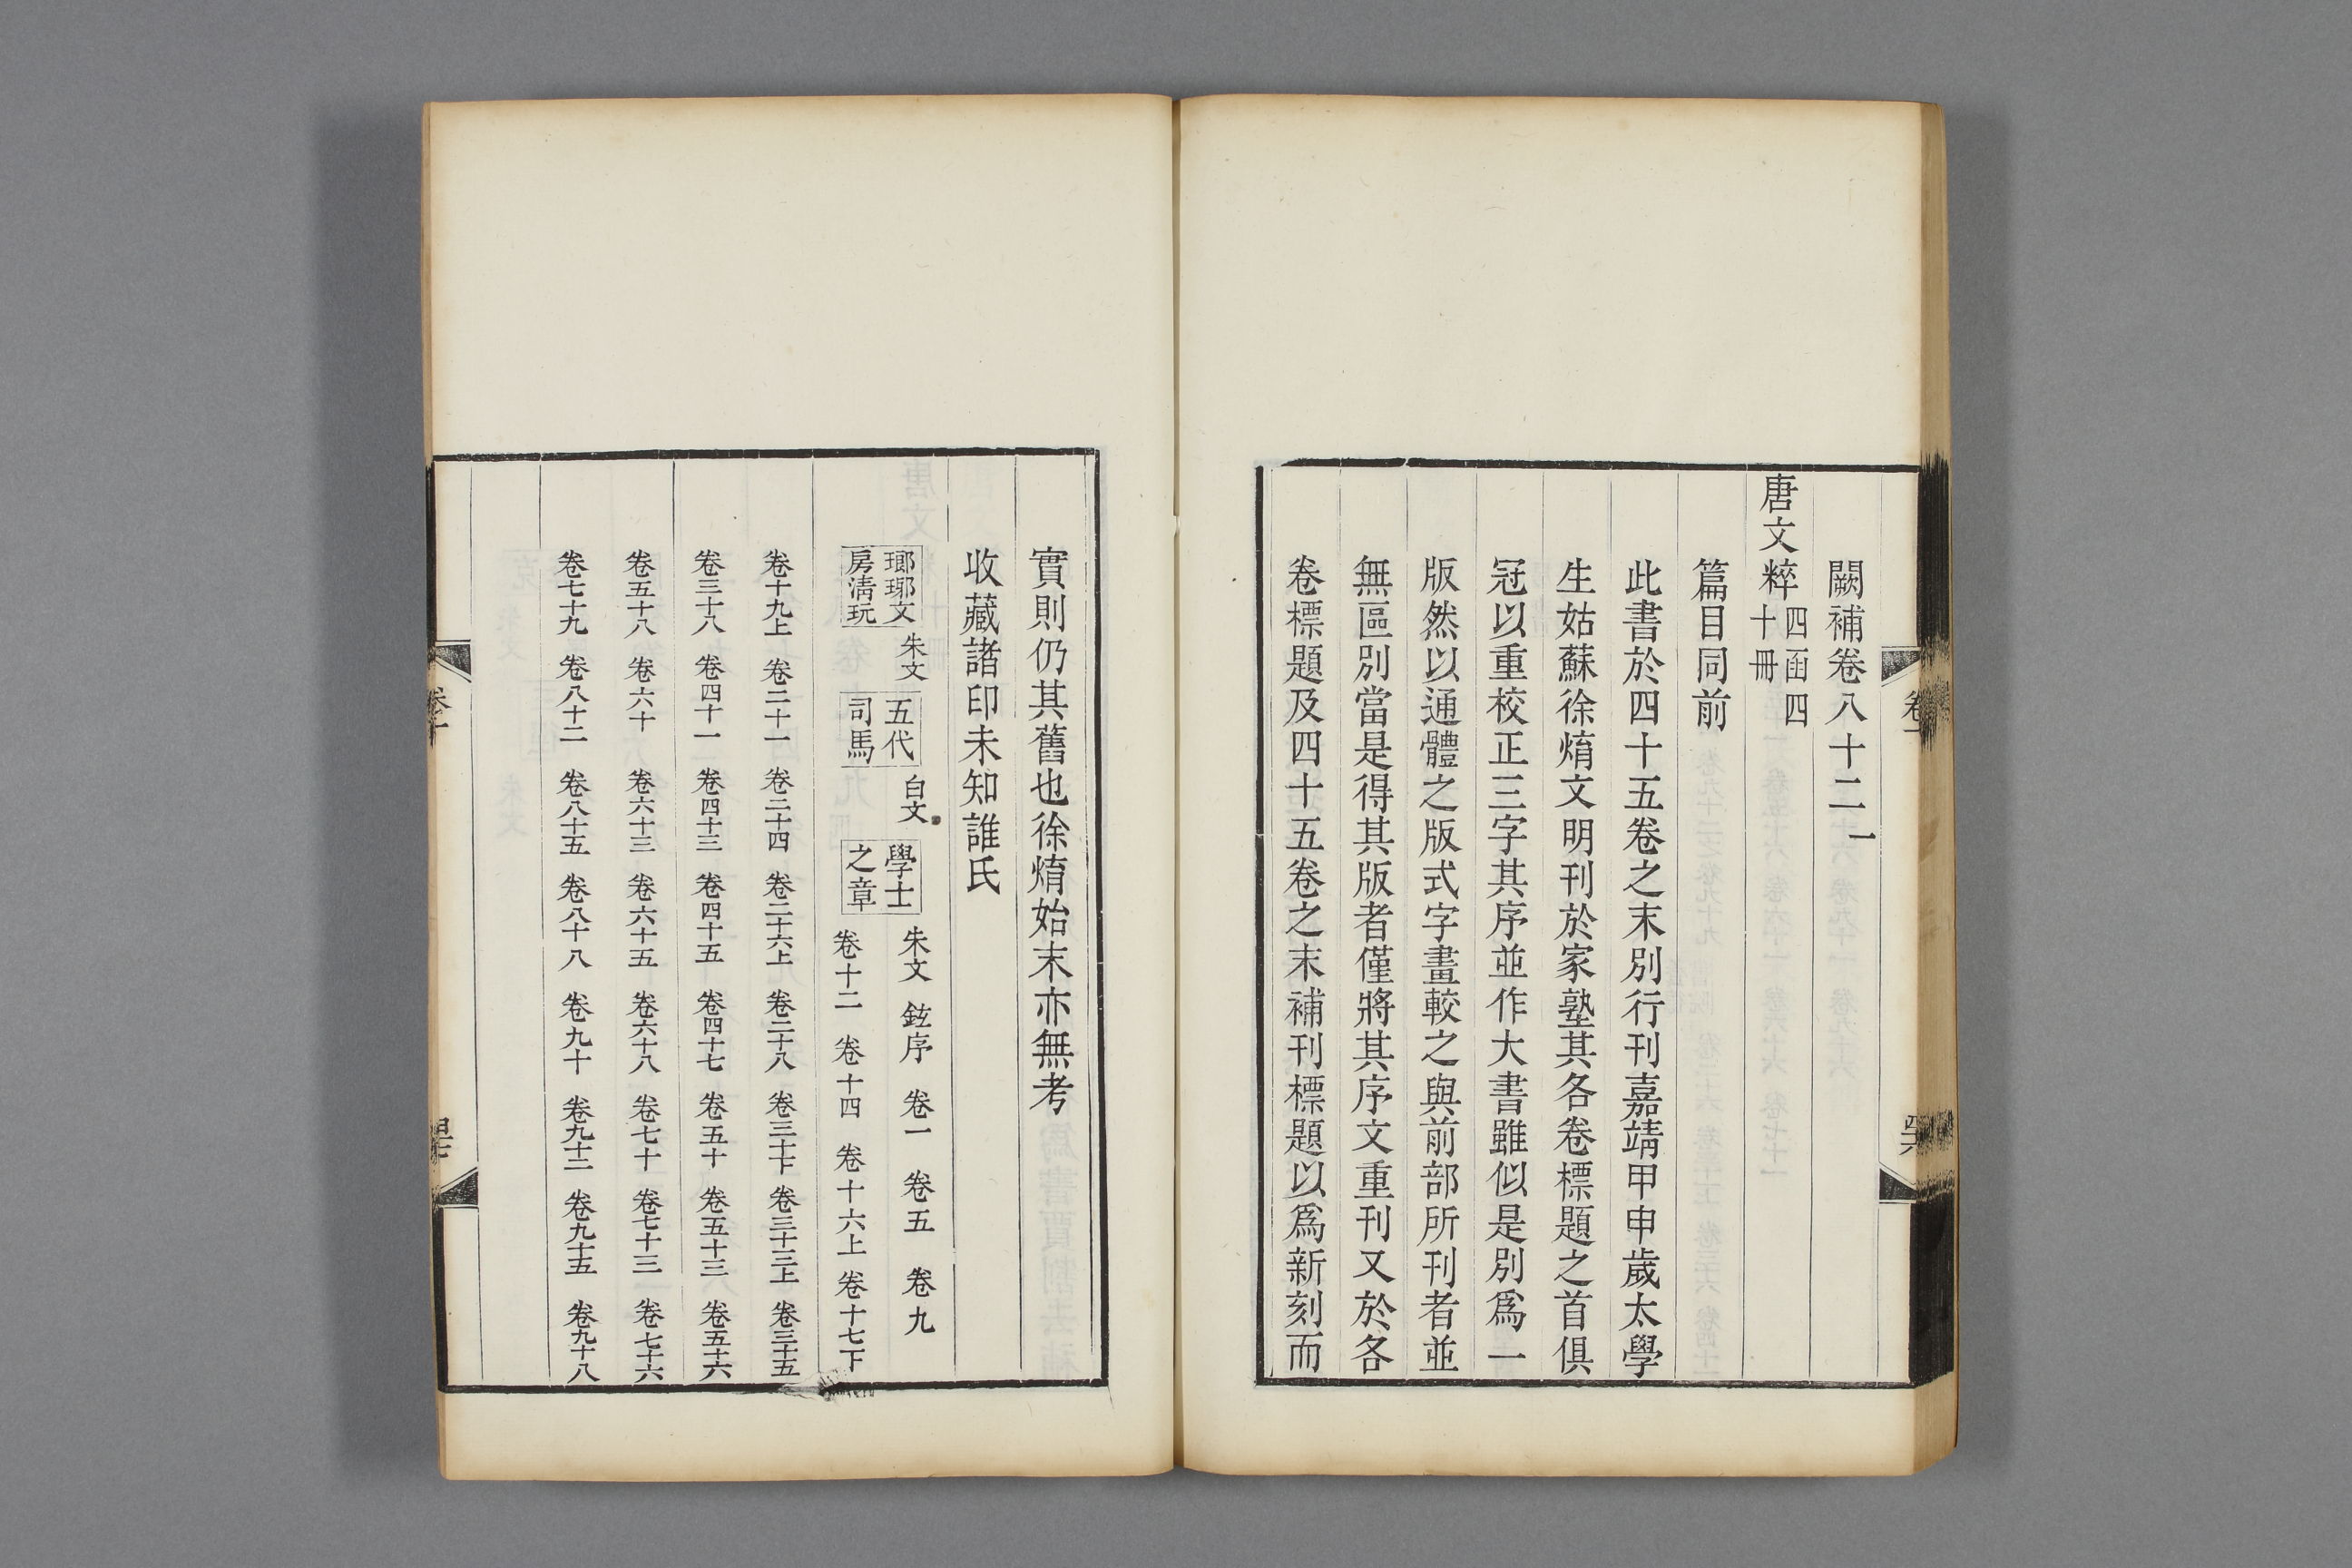 闕補卷八十二一
唐文粹四函四十冊
篇目同前
此書於四十五卷之末別行刊嘉靖甲申歲太學
生姑蘇徐焴文明刊於家塾其各卷標題之首俱
冠以重校正三字其序並作大書雖似是別爲一
版然以通體之版式字畫較之與前部所刊者並
無區別當是得其版者僅將其序文重刊又於各
卷標題及四十五卷之末補刊標題以爲新刻而
實則仍其舊也徐焴始末亦無考
收藏諸印未知誰氏
瑯琊文房清玩 朱文 五代司馬 白文 學士之章 朱文 鉉序 卷一 卷五 卷九
卷十二 卷十四 卷十六上 卷十七下
卷十九上 卷二十一 卷二十四 卷二十六上 卷二十八 卷三十下 卷三十三上 卷三十五
卷三十八 卷四十一 卷四十三 卷四十五 卷四十七 卷五十 卷五十三 卷五十六
卷五十八 卷六十 卷六十三 卷六十五 卷六十八 卷七十 卷七十三 卷七十六
卷七十九 卷八十二 卷八十五 卷八十八 卷九十 卷九十二 卷九十五 卷九十八